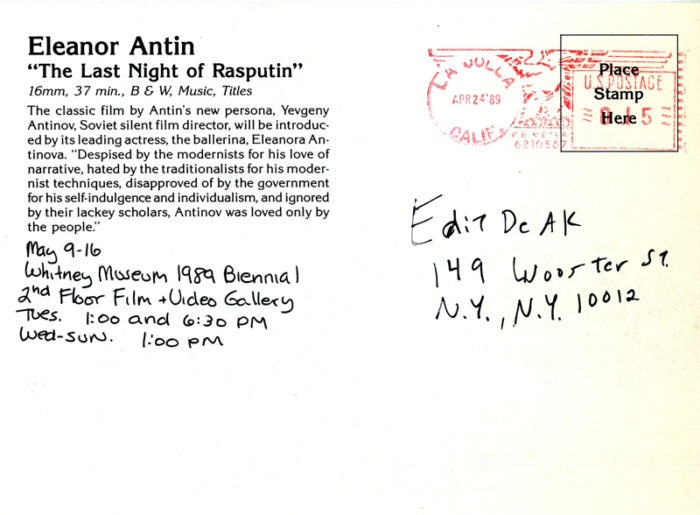 Eleanor Antin
“The Last Night of Rasputin”
16mm, 37 min., B & W, Music, Titles
The classic film by Antin's new persona, Yevgeny
Antinov, Soviet silent film director, will be introduc-
ed by its leading actress, the ballerina, Eleanora An-
tinova. “Despised by the modernists for his love of
narrative, hated by the traditionalists for his moder-
nist techniques, disapproved of by the government
for his self-indulgence and individualism, and ignored
by their lackey scholars, Antinov was loved only by
the people.”
May 9-16
Whitney Museum 1989 Biennial
2nd Floor Film + Video Gallery
Tues. 1:00 and 6:30 PM
Wed-Sun. 1:00 PM
LA JOLLA
APR 24 '89
CALIF.
U.S. POSTAGE
P.B. METER
6810567
Place
Stamp
Here
Edit DeAK
149 Wooster St.
N.Y., N.Y. 10012